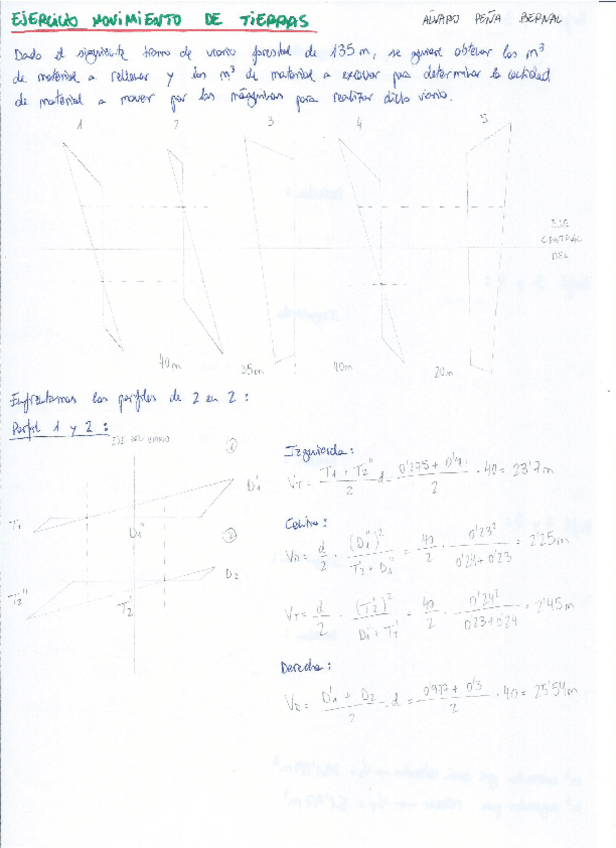 EJERCICIO MOVIMIENTO DE TIERRAS
ALVARO PEÑA BERNAL
Dado el siguiente tramo de viario forestal de 135 m, se quiere obtener los m³
de material a rellenar y los m³ de material a excavar para determinar la cantidad
de material a mover por las máquinas para realizar dicho viario.
1 2 3 4 5
EJE
CENTRAL
DEL
40m 35m 40m 20m
Enfrentamos los perfiles de 2 en 2:
Perfil 1 y 2:
EJE DEL VIARIO
1
D₁'
T₁
D₁''
2
D₂
T₂''
T₂'
Izquierda:
V_T = (T₁ + T₂'')/2 · d = (0'275 + )/2 · 40 = 23'7 m
Centro:
V_D = d/2 · (D₁'')²/(T₂' + D₁'') = 40/2 · 0'23²/(0'24+0'23) = 2'25m
V_T = d/2 · (T₂')²/(D₁'' + T₂') = 40/2 · 0'24²/(0'23+0'24) = 2'45 m
Derecha:
V_D = (D₁' + D₂)/2 · d = (0'977 + 0'3)/2 · 40 = 25'54m